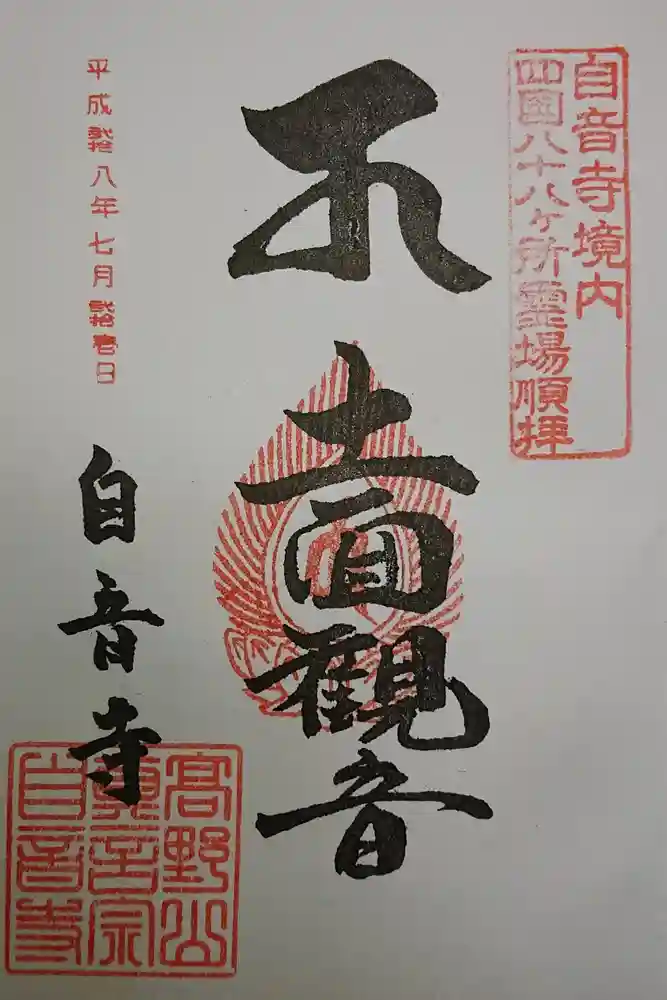 自音寺境内
四国八十八ヶ所霊場順拝
十一面観音
平成弐拾八年七月弐拾壱日
自音寺
高野山
真言宗
自音寺